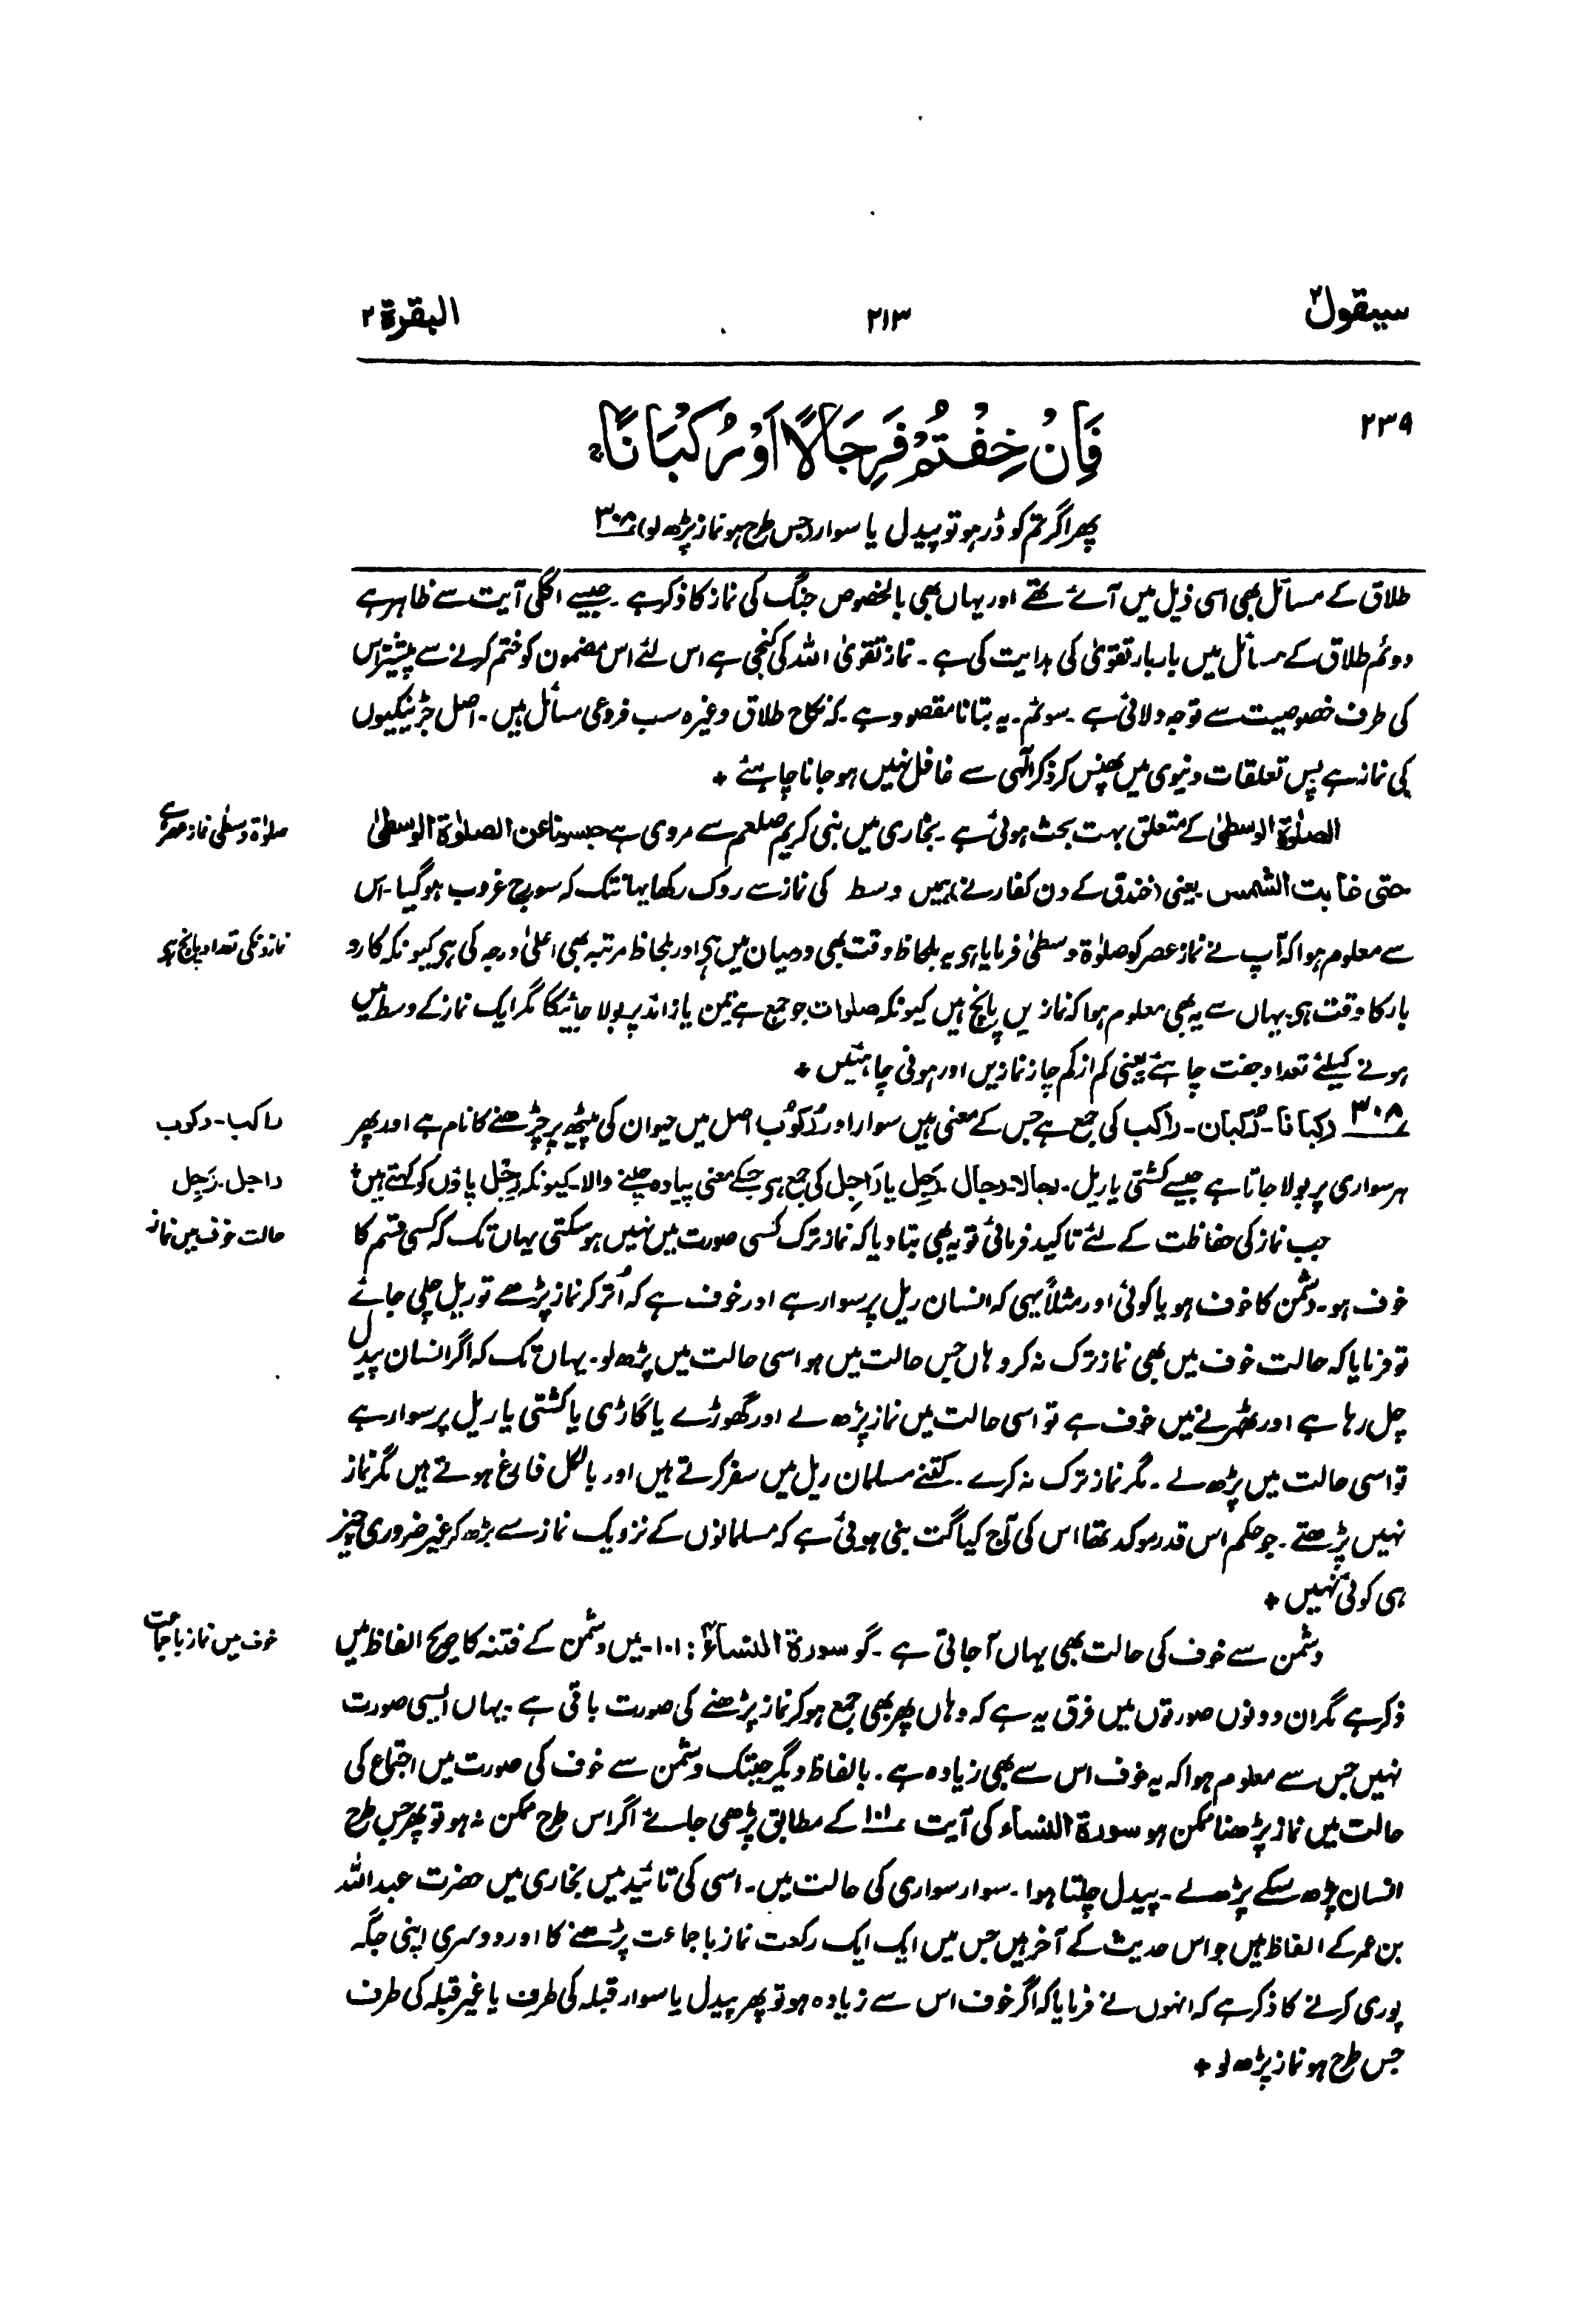 سیقول ۲
۲۱۳
البقرة ۲
۲۳۹
فَاِنْ خِفْتُمْ فَرِجَالًا اَوْ رُكْبَانًا ۚ
پھر اگر تم کو ڈر ہو تو پیدل یا سوار (جس طرح ہو نماز پڑھ لو) ۳۰۸
طلاق کے مسائل بھی اسی ذیل میں آئے تھے اور یہاں بھی بالخصوص جنگ کی نماز کا ذکر ہے ۔ جیسے اگلی آیت سے ظاہر ہے
دوئم طلاق کے مسائل میں بار بار تقویٰ کی ہدایت کی ہے ۔ نماز تقویٰ اللہ کی کنجی ہے اس لئے اس مضمون کو ختم کرنے سے پیشتر اس
کی طرف خصوصیت سے توجہ دلائی ہے ۔ سوئم ۔ یہ بتانا مقصود ہے ۔ کہ نکاح طلاق وغیرہ سب فروعی مسائل ہیں ۔ اصل جڑ نیکیوں
کی نماز ہے پس تعلقات دنیوی میں پھنس کر ذکر الٰہی سے غافل نہیں ہو جانا چاہئے +
الصلوٰة الوسطیٰ کے متعلق بہت بحث ہوئی ہے ۔ بخاری میں نبی کریم صلعم سے مروی ہے حبسونا عن الصلوٰة الوسطیٰ
صلوٰة وسطٰی نماز عصر ہے
حتی غابت الشمس یعنی (خندق کے دن کفار نے) ہمیں وسط کی نماز سے روک رکھا یہانتک کہ سورج غروب ہوگیا ۔ اس
سے معلوم ہوا کہ آپ نے نماز عصر کو صلوٰة وسطیٰ فرمایا ہی یہ بلحاظ وقت بھی درمیان میں ہی اور بلحاظ مرتبہ بھی اعلیٰ درجہ کی ہی کیونکہ کارو
نمازونکی تعداد پانچ ہی
بار کا وقت ہی یہاں سے یہ بھی معلوم ہوا کہ نمازیں پانچ ہیں کیونکہ صلوات جو جمع ہے تین یا زائد پر بولا جائیگا مگر ایک نماز کے وسط میں
ہونے کیلئے تعداد جفت چاہئے یعنی کم از کم چار نمازیں اور ہونی چاہئیں +
۳۰۸ رکبانا ۔ رُکبان ۔ راکب کی جمع ہے جس کے معنی ہیں سوار اور رُکوب اصل میں حیوان کی پیٹھ پر چڑھنے کا نام ہے اور پھر
راکب ۔ رکوب
ہر سواری پر بولا جاتا ہے جیسے کشتی یا ریل ۔ رجالا ۔ رجال ۔ رَجِل یا رَاجِل کی جمع ہی جسکے معنی پیادہ چلنے والا ۔ کیونکہ رِجْل پاؤں کو کہتے ہیں +
راجل ۔ رَجِل
جب نماز کی حفاظت کے لئے تاکید فرمائی تو یہ بھی بتا دیا کہ نماز ترک کسی صورت میں نہیں ہو سکتی یہاں تک کہ کسی قسم کا
حالت خوف میں نماز
خوف ہو ۔ دشمن کا خوف ہو یا کوئی اور مثلاً یہی کہ انسان ریل پر سوار ہے اور خوف ہے کہ اُتر کر نماز پڑھے تو ریل چلی جائے
تو فرمایا کہ حالت خوف میں بھی نماز ترک نہ کرو ہاں جس حالت میں ہو اسی حالت میں پڑھ لو ۔ یہاں تک کہ اگر انسان پیدل
چل رہا ہے اور ٹھہرنے میں خوف ہے تو اسی حالت میں نماز پڑھ لے اور گھوڑے یا گاڑی یا کشتی یا ریل پر سوار ہے
تو اسی حالت میں پڑھ لے ۔ مگر نماز ترک نہ کرے ۔ کتنے مسلمان ریل میں سفر کرتے ہیں اور بالکل فارغ ہوتے ہیں مگر نماز
نہیں پڑھتے ۔ جو حکم اس قدر موکد تھا اس کی آج کیا گت بنی ہوئی ہے کہ مسلمانوں کے نزدیک نماز سے بڑھ کر غیر ضروری چیز
ہی کوئی نہیں +
دشمن سے خوف کی حالت بھی یہاں آجاتی ہے ۔ گو سورة النساء ۴ : ۱۰۱ ۔ میں دشمن کے فتنہ کا صریح الفاظ میں
خوف میں نماز باجماعت
ذکر ہے مگر ان دونوں صورتوں میں فرق یہ ہے کہ وہاں پھر بھی جمع ہو کر نماز پڑھنے کی صورت باقی ہے ۔ یہاں ایسی صورت
نہیں جس سے معلوم ہوا کہ یہ خوف اس سے بھی زیادہ ہے ۔ بالفاظ دیگر جبتک دشمن سے خوف کی صورت میں اجتماع کی
حالت میں نماز پڑھنا ممکن ہو سورة النساء کی آیت ۱۰۱ کے مطابق پڑھی جائے اگر اس طرح ممکن نہ ہو تو پھر جس طرح
انسان پڑھ سکے پڑھ لے ۔ پیدل چلتا ہوا ۔ سوار سواری کی حالت میں ۔ اسی کی تائید میں بخاری میں حضرت عبد اللہ
بن عمر کے الفاظ ہیں جو اس حدیث کے آخر ہیں جس میں ایک ایک رکعت نماز باجماعت پڑھنے کا اور دوسری اپنی جگہ
پوری کرنے کا ذکر ہے کہ انہوں نے فرمایا کہ اگر خوف اس سے زیادہ ہو تو پھر پیدل یا سوار قبلہ کی طرف یا غیر قبلہ کی طرف
جس طرح ہو نماز پڑھ لو +